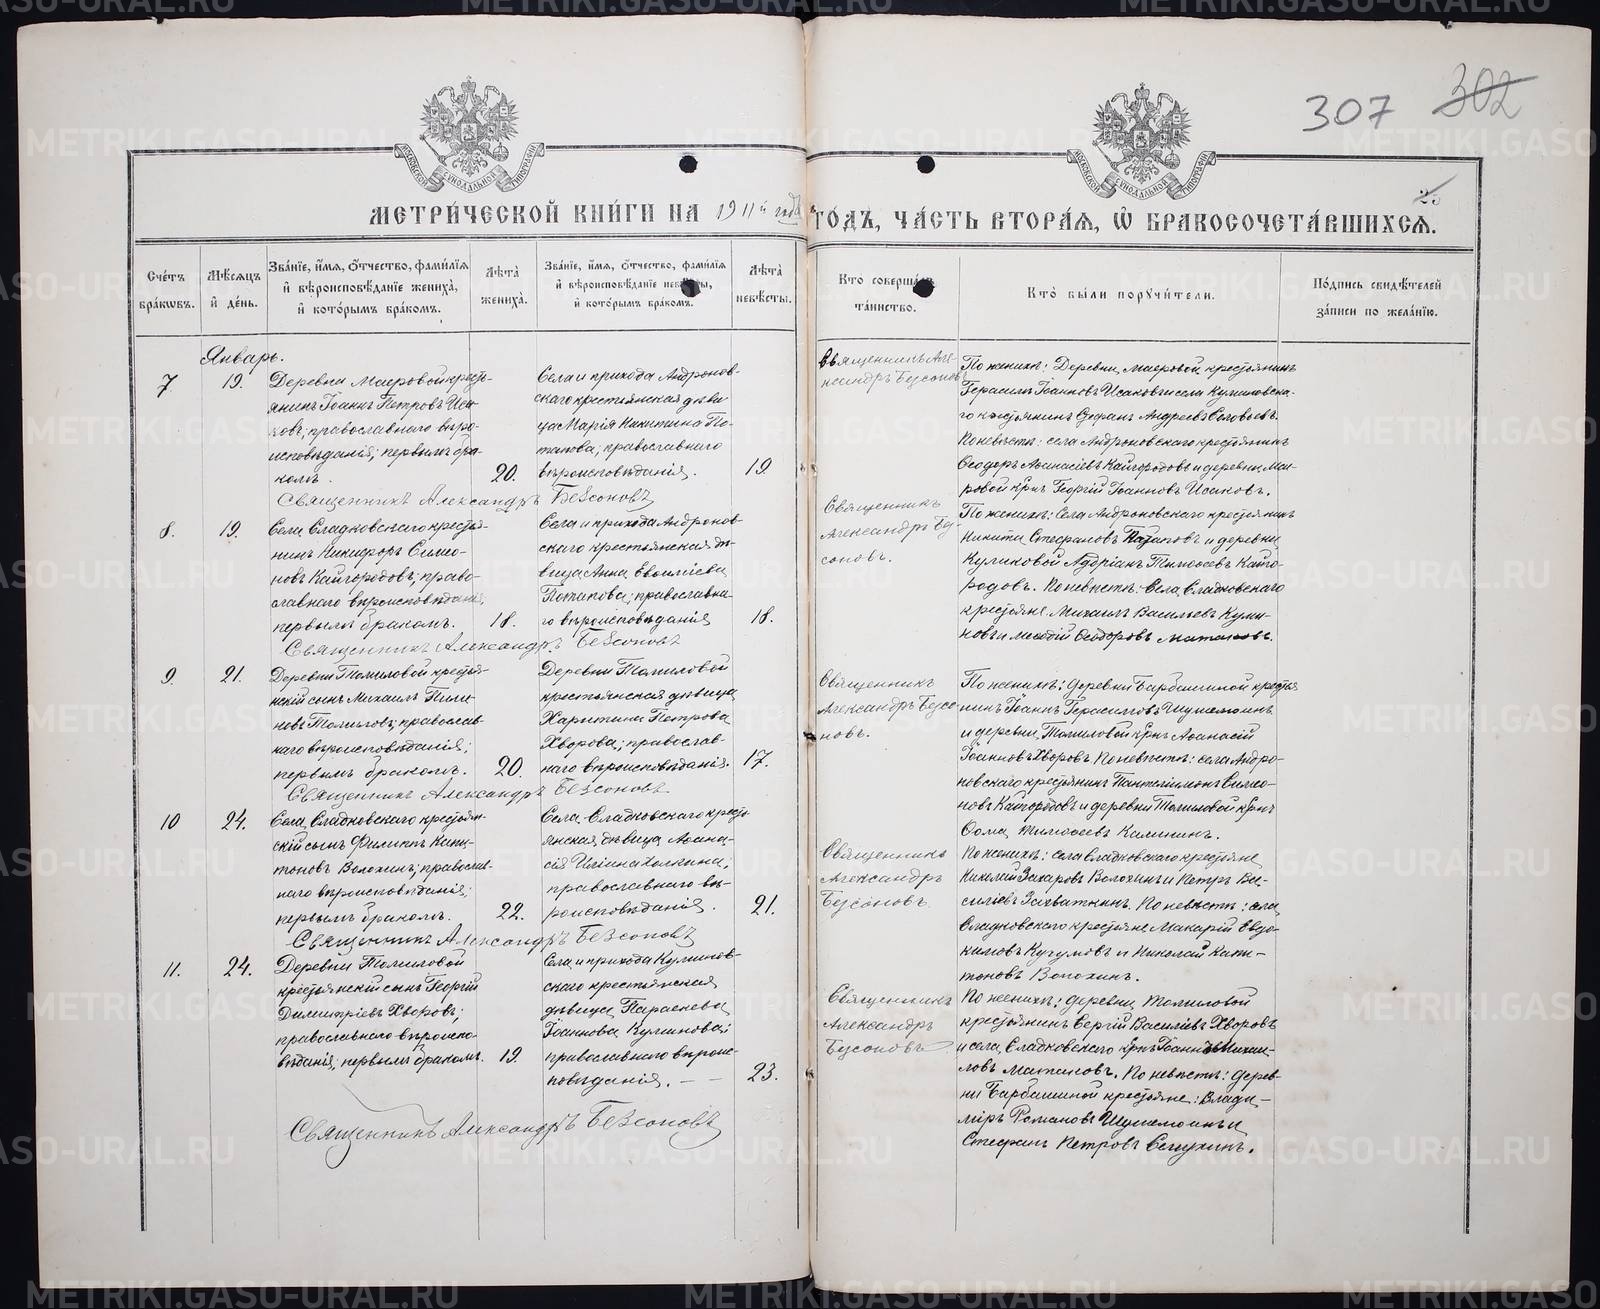 307 302
МЕТРИ́ЧЕСКОЙ КНИ́ГИ НА 1911й годъ ГО́ДЪ, ЧА́СТЬ ВТОРА́Я, Ѡ҆ БРАКОСОЧЕТА́ВШИХСѦ.
Сче́тъ бра́ковъ.
Мѣ́сяцъ и҆ де́нь.
Зва́нїе, и҆́мя, ѻ҆́тчество, фами́лїя и҆ вѣроисповѣ́данїе жениха̀, и҆ кото́рымъ бра́комъ.
Лѣ́та жениха̀.
Зва́нїе, и҆́мя, ѻ҆́тчество, фами́лїя и҆ вѣроисповѣ́данїе невѣ́сты, и҆ кото́рымъ бра́комъ.
Лѣ́та невѣ́сты.
Кто̀ соверша́лъ та́инство.
Кто̀ бы́ли поручи́тели.
По́дпись свидѣ́телей за́писи по жела́нїю.
Январь.
7 19.
Деревни Маєровой кресть-
янинъ Іоаннъ Петровъ Иса-
ковъ, православнаго вѣро-
исповѣданія; первымъ бра-
комъ.
20.
Села и прихода Андронов-
скаго крестьянская дѣви
ца Марія Никитина По-
тапова, православнаго
вѣроисповѣданія.
19
Священникъ Александръ Безсоновъ
Священникъ Але-
ксандръ Безсоновъ
По женихѣ: Деревни Маєровой крестьянинъ
Герасимъ Іоанновъ Исаковъ и села Куликовска-
го крестьянинъ Стефанъ Андреевъ Соловьевъ.
По невѣстѣ: села Андроновскаго крестьянинъ
Ѳеодоръ Аѳанасіевъ Кайгородовъ и деревни Ма-
ровой кр-нъ Георгій Іоанновъ Исаковъ.
8. 19.
Села Сладковскаго кресть-
нинъ Никифоръ Симео-
новъ Кайгородовъ; право-
славнаго вѣроисповѣданія,
первымъ бракомъ.
18.
Села и прихода Андронов-
скаго крестьянская дѣ-
вица Анна
Потапова; православна-
го вѣроисповѣданія
18.
Священникъ Александръ Безсоновъ
Священникъ
Александръ Бе-
соновъ.
По женихѣ: Села Андроновскаго крестьянинъ
Никита Потаповъ и деревни
Куликовой Адріанъ Тимоѳеевъ Кайго-
родовъ. По невѣстѣ: Села Сладковскаго
крестьяне Михаилъ Васильевъ Кули-
новъ и Ѳеодоровъ
9. 21.
Деревни Томиловой кресть-
нскій сынъ Михаилъ
новъ Томиловъ; православ-
наго вѣроисповѣданія;
первымъ бракомъ.
20.
Деревни Томиловой
крестьянская дѣвица
Харитина Петрова
Хворова; православ-
наго вѣроисповѣданія.
17.
Священникъ Александръ Безсоновъ
Священникъ
Александръ Безсо-
новъ.
По женихѣ: деревни Барбашиной крестья
нинъ Іоаннъ Герасимовъ Шушемоинъ
и деревни Томиловой кр-нъ Аѳанасій
Іоанновъ Хворовъ По невѣстѣ: села Андро-
новскаго крестьянинъ Пантелеимонъ Симео-
новъ Кайгородовъ и деревни Томиловой кр-нъ
Ѳома Тимоѳеевъ Калининъ.
10 24.
Села Сладковскаго крестьян-
скій сынъ Филиппъ Капи-
тоновъ Волохинъ; православ-
наго вѣроисповѣданія;
первымъ бракомъ.
22.
Села Сладковскаго кресть-
янская дѣвица Аѳана-
сія Иліина
православнаго вѣ-
роисповѣданія.
21.
Священникъ Александръ Безсоновъ
Священникъ
Александръ
Безсоновъ
По женихѣ: села Сладковскаго крестьяне
Николай Захаровъ Волохинъ и Петръ Ва-
силіевъ Захваткинъ. По невѣстѣ: села
Сладковскаго крестьяне Макарій Евдо-
кимовъ Кучумовъ и Николай Капи-
тоновъ Волохинъ.
11. 24.
Деревни Томиловой
крестьянскій сынъ Георгій
Димитріевъ Хворовъ;
православнаго вѣроиспо-
вѣданія, первымъ бракомъ.
19.
Села и прихода Куликов-
скаго крестьянская
дѣвица Параскева
Іоаннова Куликова;
православнаго вѣроис-
повѣданія. — —
23.
Священникъ Александръ Безсоновъ
Священникъ
Александръ
Безсоновъ
По женихѣ: деревни Томиловой
крестьянинъ Сергій Василіевъ Хворовъ
и села Сладковскаго кр-нъ Іоаннъ Михаи-
ловъ По невѣстѣ: Дерев-
ни Барбашиной крестьяне: Влади-
міръ Романовъ Шушемоинъ и
Стефанъ Петровъ Семухинъ.